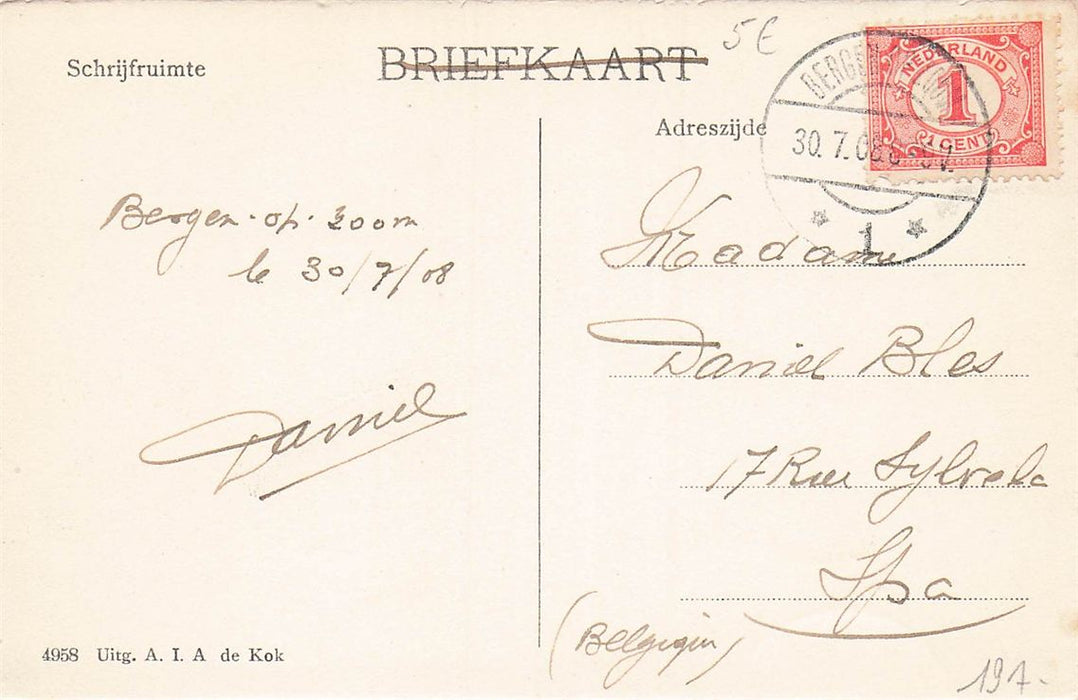 Schrijfruimte
BRIEFKAART
5€
NEDERLAND
1
1 CENT
BERGEN
30.7.08
1
Adreszijde
Bergen-op-zoom
le 30/7/08
Daniel
Madame
Daniel Bles
17 Rue
Spa
(Belgiqin)
4958 Uitg. A. I. A de Kok
197-